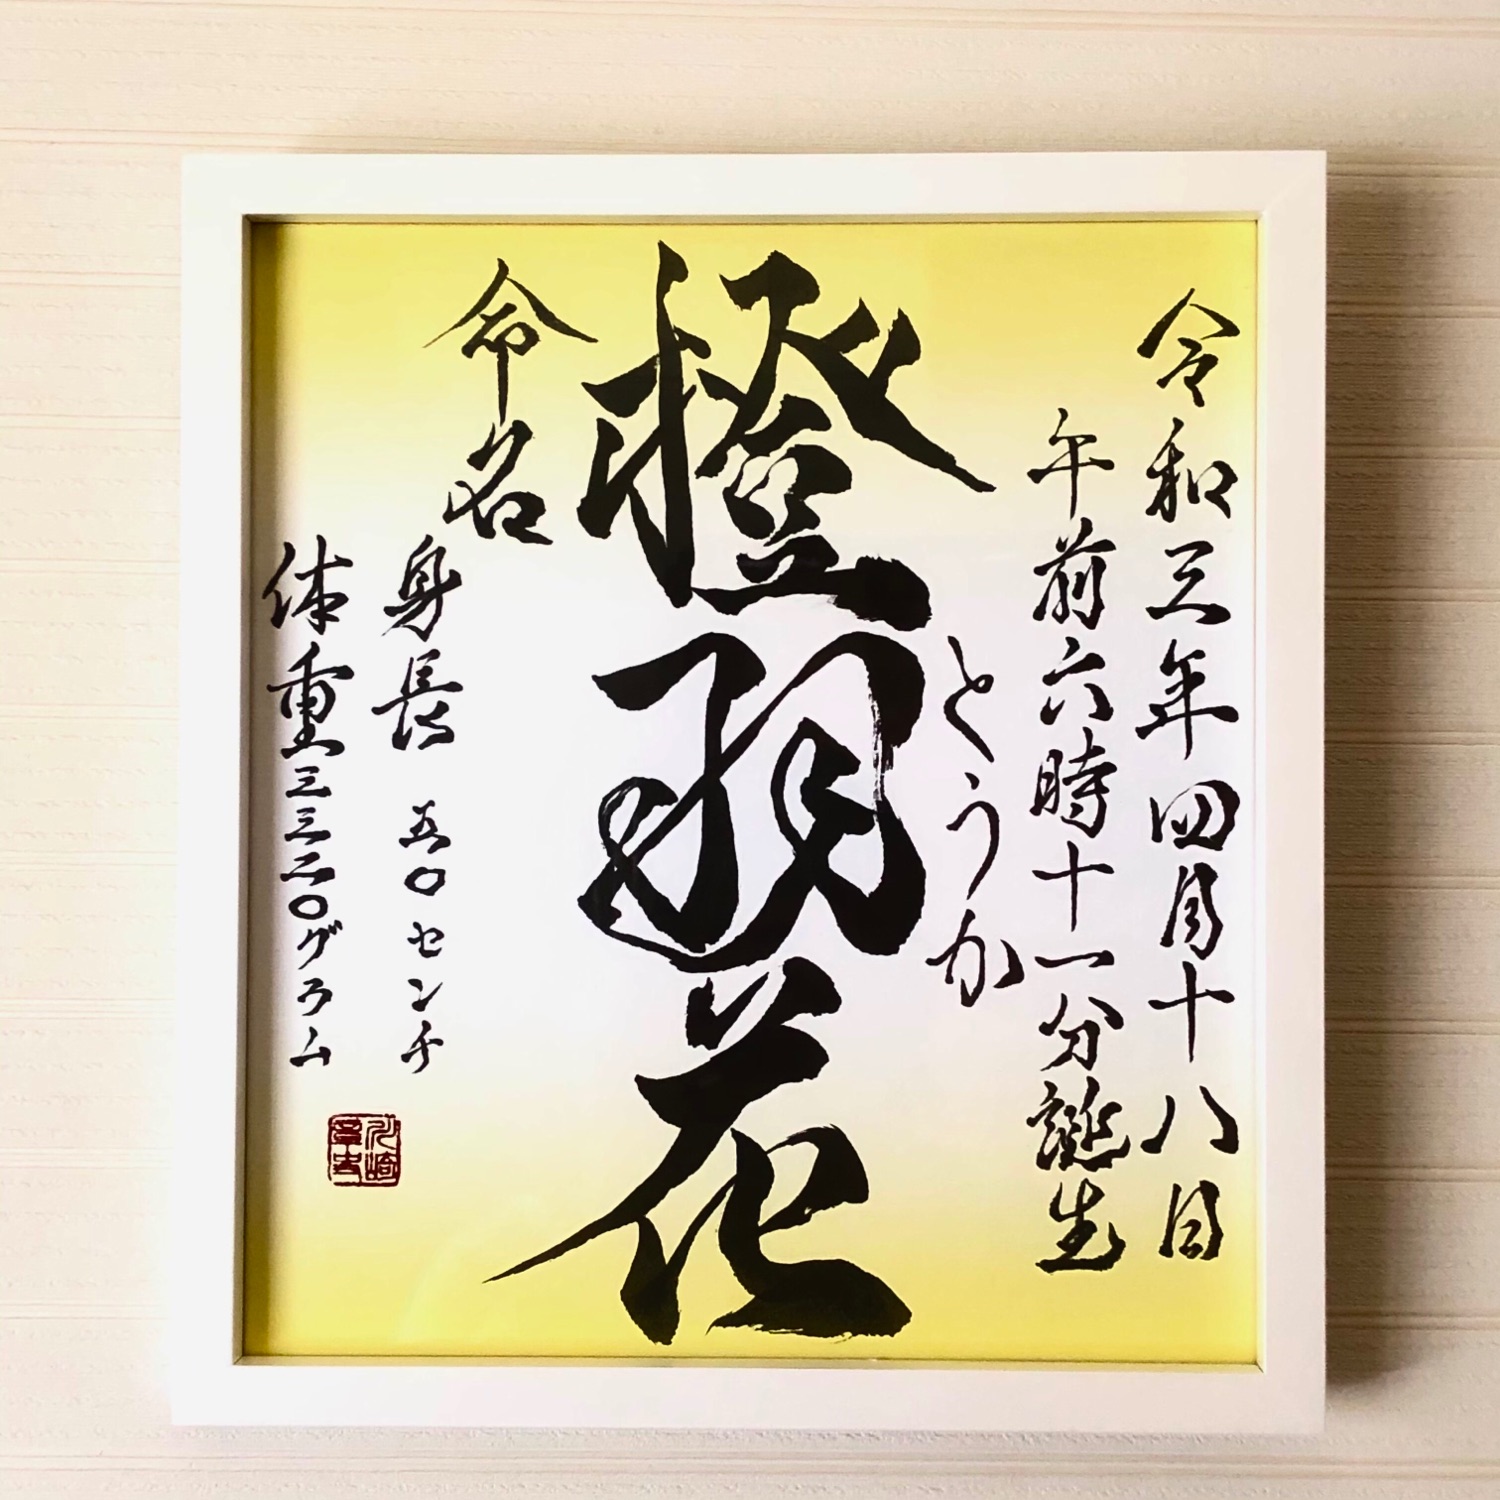 令和三年四月十八日
午前六時十一分誕生
とうか
橙羽花
命名
身長 五〇センチ
体重三三二〇グラム